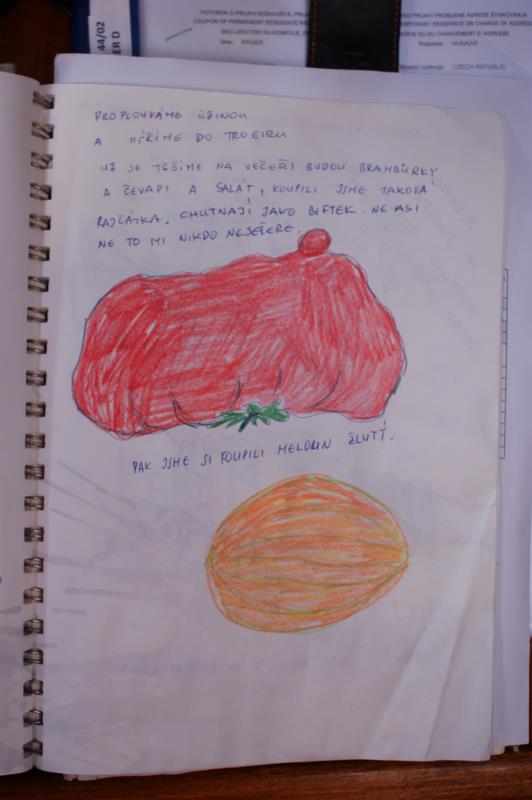 44/02
ER D
POTVRDA O PRIJAVI BORAVIŠTA, PRI
COUPON OF PERMANENT RESIDENCE RE
DECLARATION OU DOMICILE, DE
Ime: RADEK
NO PRIJAVI PROMJENE ADRESE STANOVANJA
TEMPORARY RESIDENCE OR CHANGE OF ADDRESS
ENCE OU DU CHANGEMENT D'ADRESSE
Prezime: HUNKAR
CZECH REPUBLIC
PROPLOUVÁME ÚŽINOU
A MÍŘÍME DO TROGIRU
UŽ SE TĚŠÍME NA VEČEŘI BUDOU BRAMBŮRKY
A ČEVAPI A SALÁT, KOUPILI JSME TAKOVÁ
RAJČÁTKA, CHUTNAJÍ JAKO BIFTEK. NE ASI
NE TO MI NIKDO NESEŽERE.
PAK JSME SI KOUPILI MELOUN ŽLUTÝ.